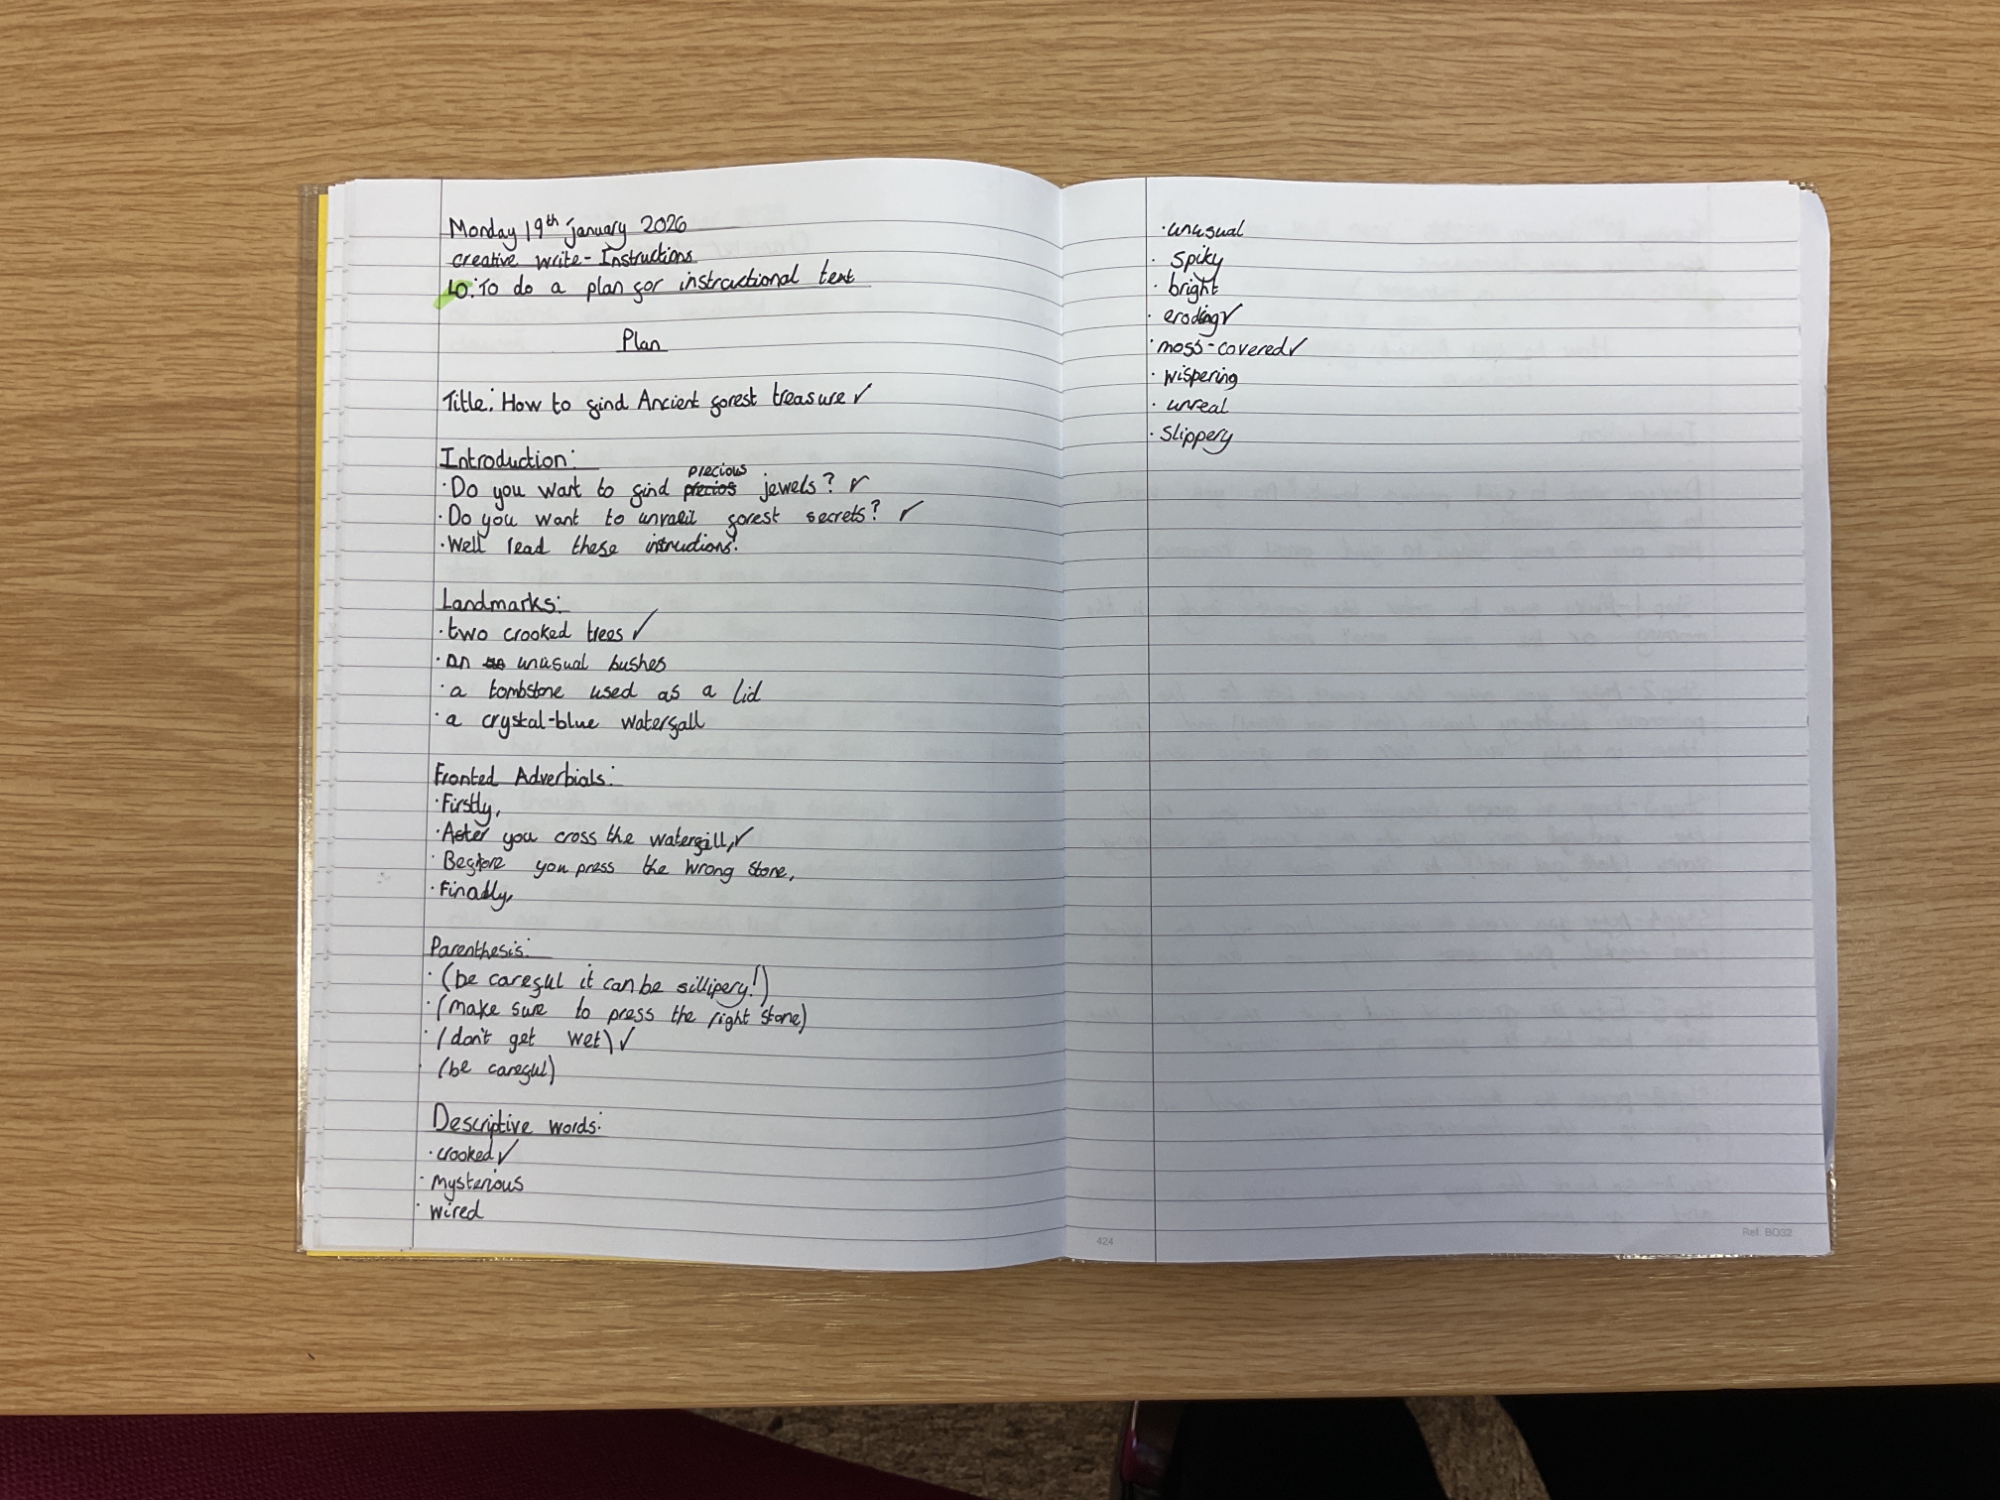 Monday 19th january 2026
creative write - Instructions
LO: To do a plan for instructional text
Plan
Title: How to find Ancient forest treasure ✓
Introduction:
precious
· Do you want to find precios jewels? ✓
· Do you want to unvaeil forest secrets? ✓
· Well read these intructions!
Landmarks:
· two crooked trees ✓
· an unusual bushes
· a tombstone used as a lid
· a crystal-blue waterfall
Fronted Adverbials:
· Firstly,
· After you cross the waterfill, ✓
· Before you press the wrong stone,
· Finally,
Parenthesis:
· (be careful it can be sillipery!)
· (make sure to press the right stone)
· (don't get wet) ✓
· (be careful)
Descriptive words:
· crooked ✓
· mysterious
· wired
· unusual
· spiky
· bright
· eroding ✓
· moss-covered ✓
· wispering
· unreal
· slippery
424
Ref: BO32